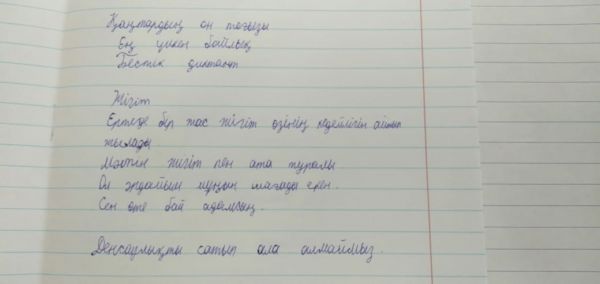 Қаңтардың он тоғызы
Ең үлкен байлық
Бестік диктант
Жігіт
Ертеде бір жас жігіт өзінің кедейлігін айтып
жылады
Мәтін жігіт пен ата туралы.
Ол әрдайым мұңын шағады екен.
Сен өте бай адамсың.
Денсаулықты сатып ала алмаймыз.